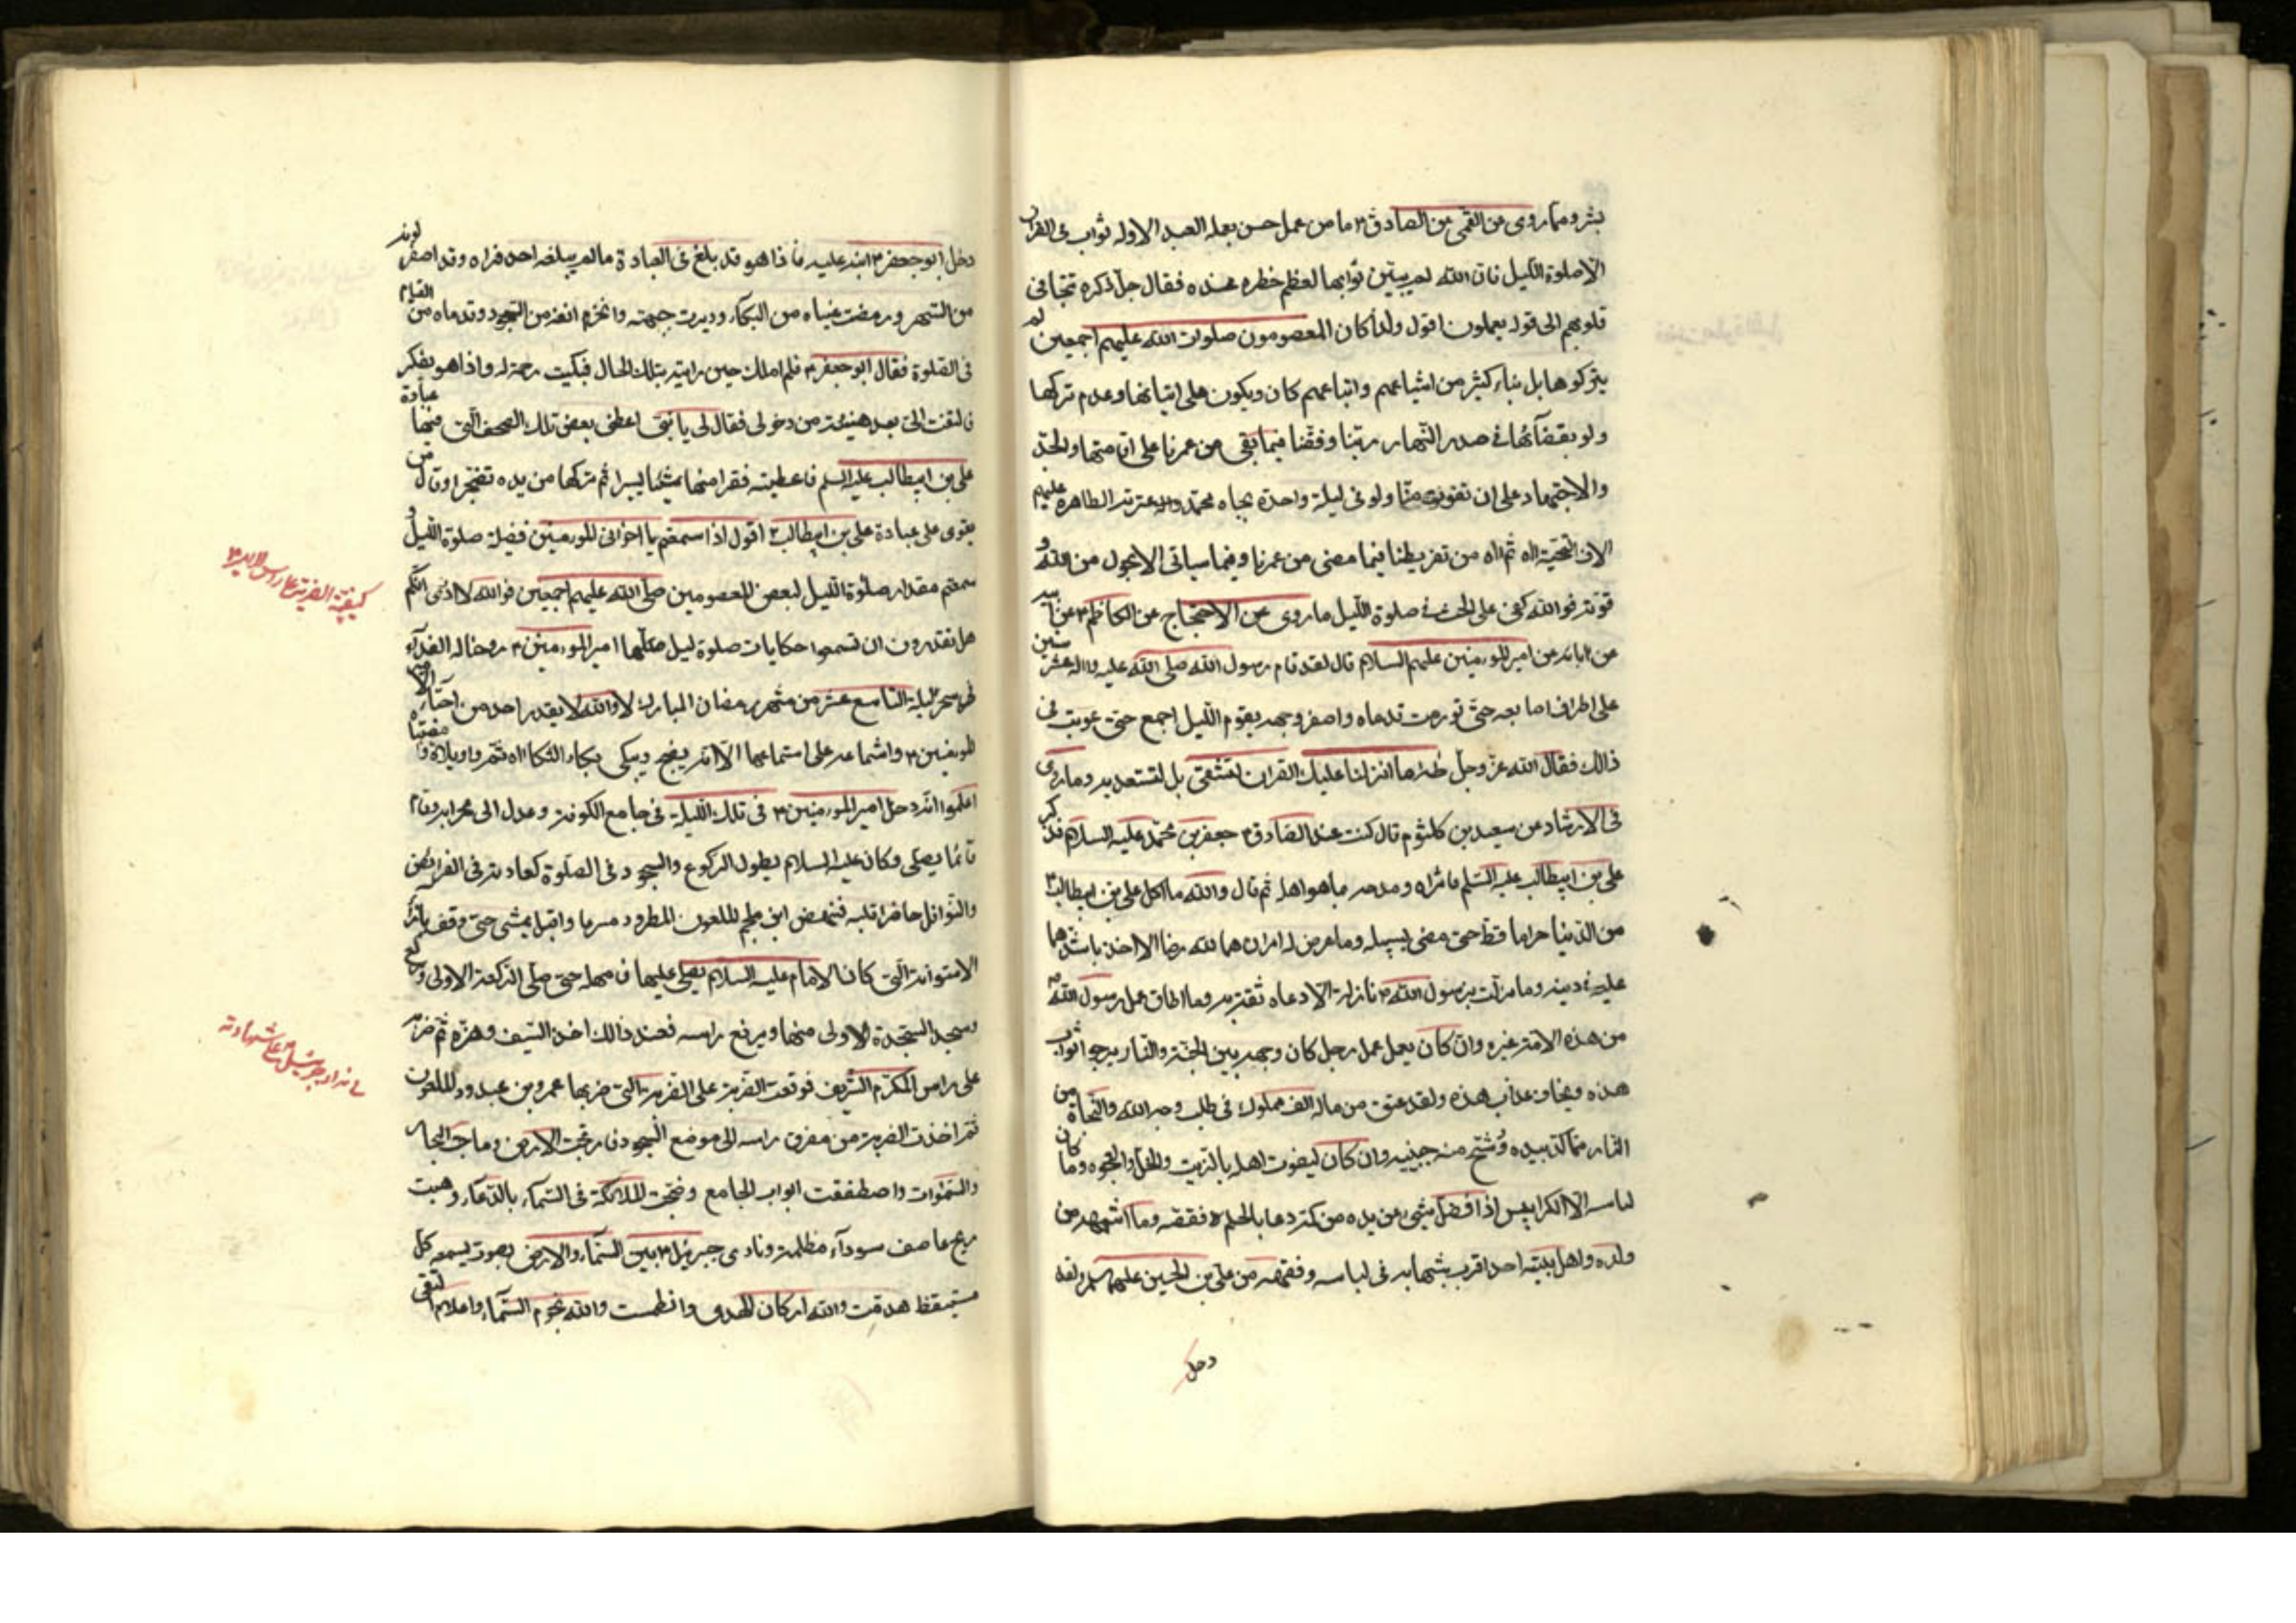 بشر ومما روى عن القمى عن الصادق ۴ ما من عمل حسن يعمله العبد الا وله ثواب فى القران
الا صلوة الليل فان الله لم يبيّن ثوابها لعظم خطره عنده فقال جل ذكره تتجافى
قلوبهم الى قوله يعملون اقول ولذا كان المعصومون صلوات الله عليهم اجمعين لم
يتركوها بل بناء كثير من اشياعهم واتباعهم كان ويكون على اتيانها وعدم تركها
ولو بقضآئها فى صدر النهار ربنا وفقنا فيما بقى من عمرنا على اتيانها والجد
والاجتهاد على ان تفوت منا ولو فى ليلة واحدة بجاه محمد وعترته الطاهرة عليهم
الاف التحية اه ثم اه من تفريطنا فيما مضى من عمرنا وفيما سياتى الا بحول من الله و
قوته فوالله كفى على الحث فى صلوة الليل ما روى عن الاحتجاج عن الكاظم ۴ عن ابيه
عن ابائه عن امير المؤمنين عليهم السلام قال لقد قام رسول الله صلى الله عليه واله عشر سنين
على اطراف اصابعه حتى تورمت قدماه واصفر وجهه يقوم الليل اجمع حتى عوتب فى
ذالك فقال الله عز وجل طه ما انزلنا عليك القران لتشقى بل لتسعد به وما روى
فى الارشاد عن سعيد بن كلثوم قال كنت عند الصادق ۴ جعفر بن محمد عليه السلام فذكر
على بن ابيطالب عليه السلم فاثراه ومدحه بما هو اهله ثم قال والله ما اكل على بن ابيطالب ۴
من الدنيا حراما قط حتى مضى لسبيله وما عرض له امران هما لله رضا الا اخذ باشدهما
عليه فى دينه وما نزلت برسول الله نازلة الا دعاه ثقة به وما اطاق عمل رسول الله
من هذه الامة غيره وان كان يعمل عمل رجل كان وجهه بين الجنة والنار يرجو ثواب
هذه ويخاف عذاب هذه ولقد عتق من ماله الف مملوك فى طلب وجه الله والنجاة من
النار مما كد بيده ورشح منه جبينه وان كان ليقوت اهله بالزيت والخل والعجوه وما كان
لباسه الا الكرابيس اذا فضل شىء عن يده من كمه دعا بالجلم فقصه وما اشبهه من
ولده واهل بيته احد اقرب شبها به فى لباسه وفقهه من على بن الحسين عليهما السلم ولقد
دخل
دخل ابو جعفر ۴ ابنه عليه فاذا هو قد بلغ فى العبادة ما لم يبلغه احد فراه وقد اصفر لونه
من السهر ورمضت عيناه من البكاء ودبرت جبهته وانخرم انفه من السجود وقدماه من القيام
فى الصلوة فقال ابو جعفر ۴ فلم املك حين رايته بتلك الحال فبكيت رحمة له واذا هو يفكر
فالتفت الى بعد هنيئة من دخولى فقال لى يا بنى اعطنى بعض تلك الصحف التى فيها عبادة
على بن ابيطالب عليه السلم فاعطيته فقرا منها شيئا يسيرا ثم تركها من يده تضجرا وقال من
يقوى على عبادة على بن ابيطالب ۴ اقول اذا سمعتم يا اخوانى المؤمنين فضيلة صلوة الليل و
سمعتم مقدار صلوة الليل لبعض المعصومين صلى الله عليهم اجمعين فوالله لا ادرى انكم
هل تقدرون ان تسمعوا حكايات صلوة ليل صلّيها امير المؤمنين ۴ روحنا له الفدآء
فى سحر ليلة التاسع عشر من شهر رمضان المبارك لا والله لا يقدر احد من احباء
المؤمنين ۴ واشياعه على استماعها الا انه يضج ويبكى بكاء الثكلا اه ثم واويلاه
اعلموا انه دخل امير المؤمنين ۴ فى تلك الليلة فى جامع الكوفة وعدل الى محرابه وقام
قائما يصلى وكان عليه السلام يطول الركوع والسجود فى الصلوة كعادته فى الفرائض
والنوافل حاضرا قلبه فنهض ابن ملجم الملعون المطرود مسرعا واقبل يمشى حتى وقف بازاء
الاستوانة التى كان الامام عليه السلام يصلى عليها فامهله حتى صلى الركعة الاولى وركع
وسجد السجدة الاولى منها ويرفع راسه فعند ذالك اخذ السيف وهزه ثم ضربه
على راس المكرم الشريف فوقعت الضربة على الضربة التى ضربها عمرو بن عبدود الملعون
ثم اخذت الضربة من مفرق راسه الى موضع السجود فارتجت الارض وماجت البحار
والسموات واصطفقت ابواب الجامع وضجت الملائكة فى السماء بالدعاء وهبت
ريح عاصف سودآء مظلمة ونادى جبرئيل ۴ بين السماء والارض بصوت يسمعه كل
مستيقظ هدمت والله اركان الهدى وانطمست والله نجوم السماء واعلام التقى
كيفية الضربة على راس الامير ۴